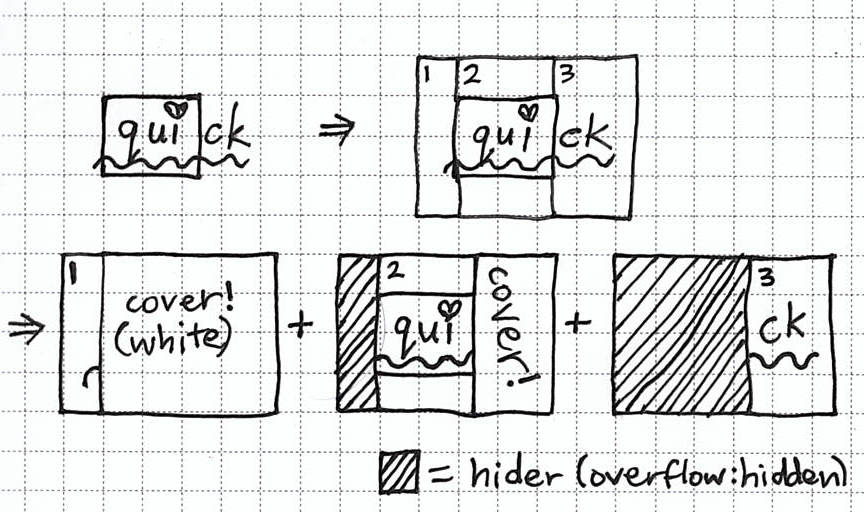 quick ⇒ 1 2 3 quick
⇒ 1 cover! + 2 qui cover! + 3 ck
(white)
= hider (overflow:hidden)